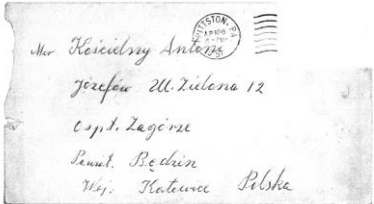 PITTSTON, PA.
Mr Kościelny Antoni
Józefów Ul. Zielona 12
Zagórze
Powiat. Będzin
Woj: Katowice Polska